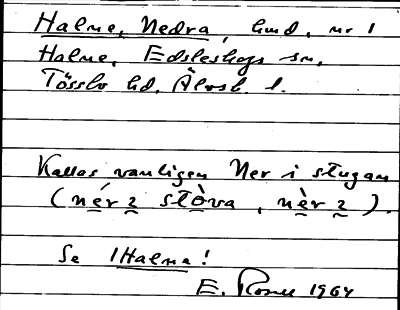 Halne, Nedra, hmd, nr 1
Halne, Edsleskogs sn,
Tössbo hd, Älvsb. l.
Kallas vanligen Ner i stugan
(nér 2 stòva, nèr 2).
Se 1 Halna!
E. 1964